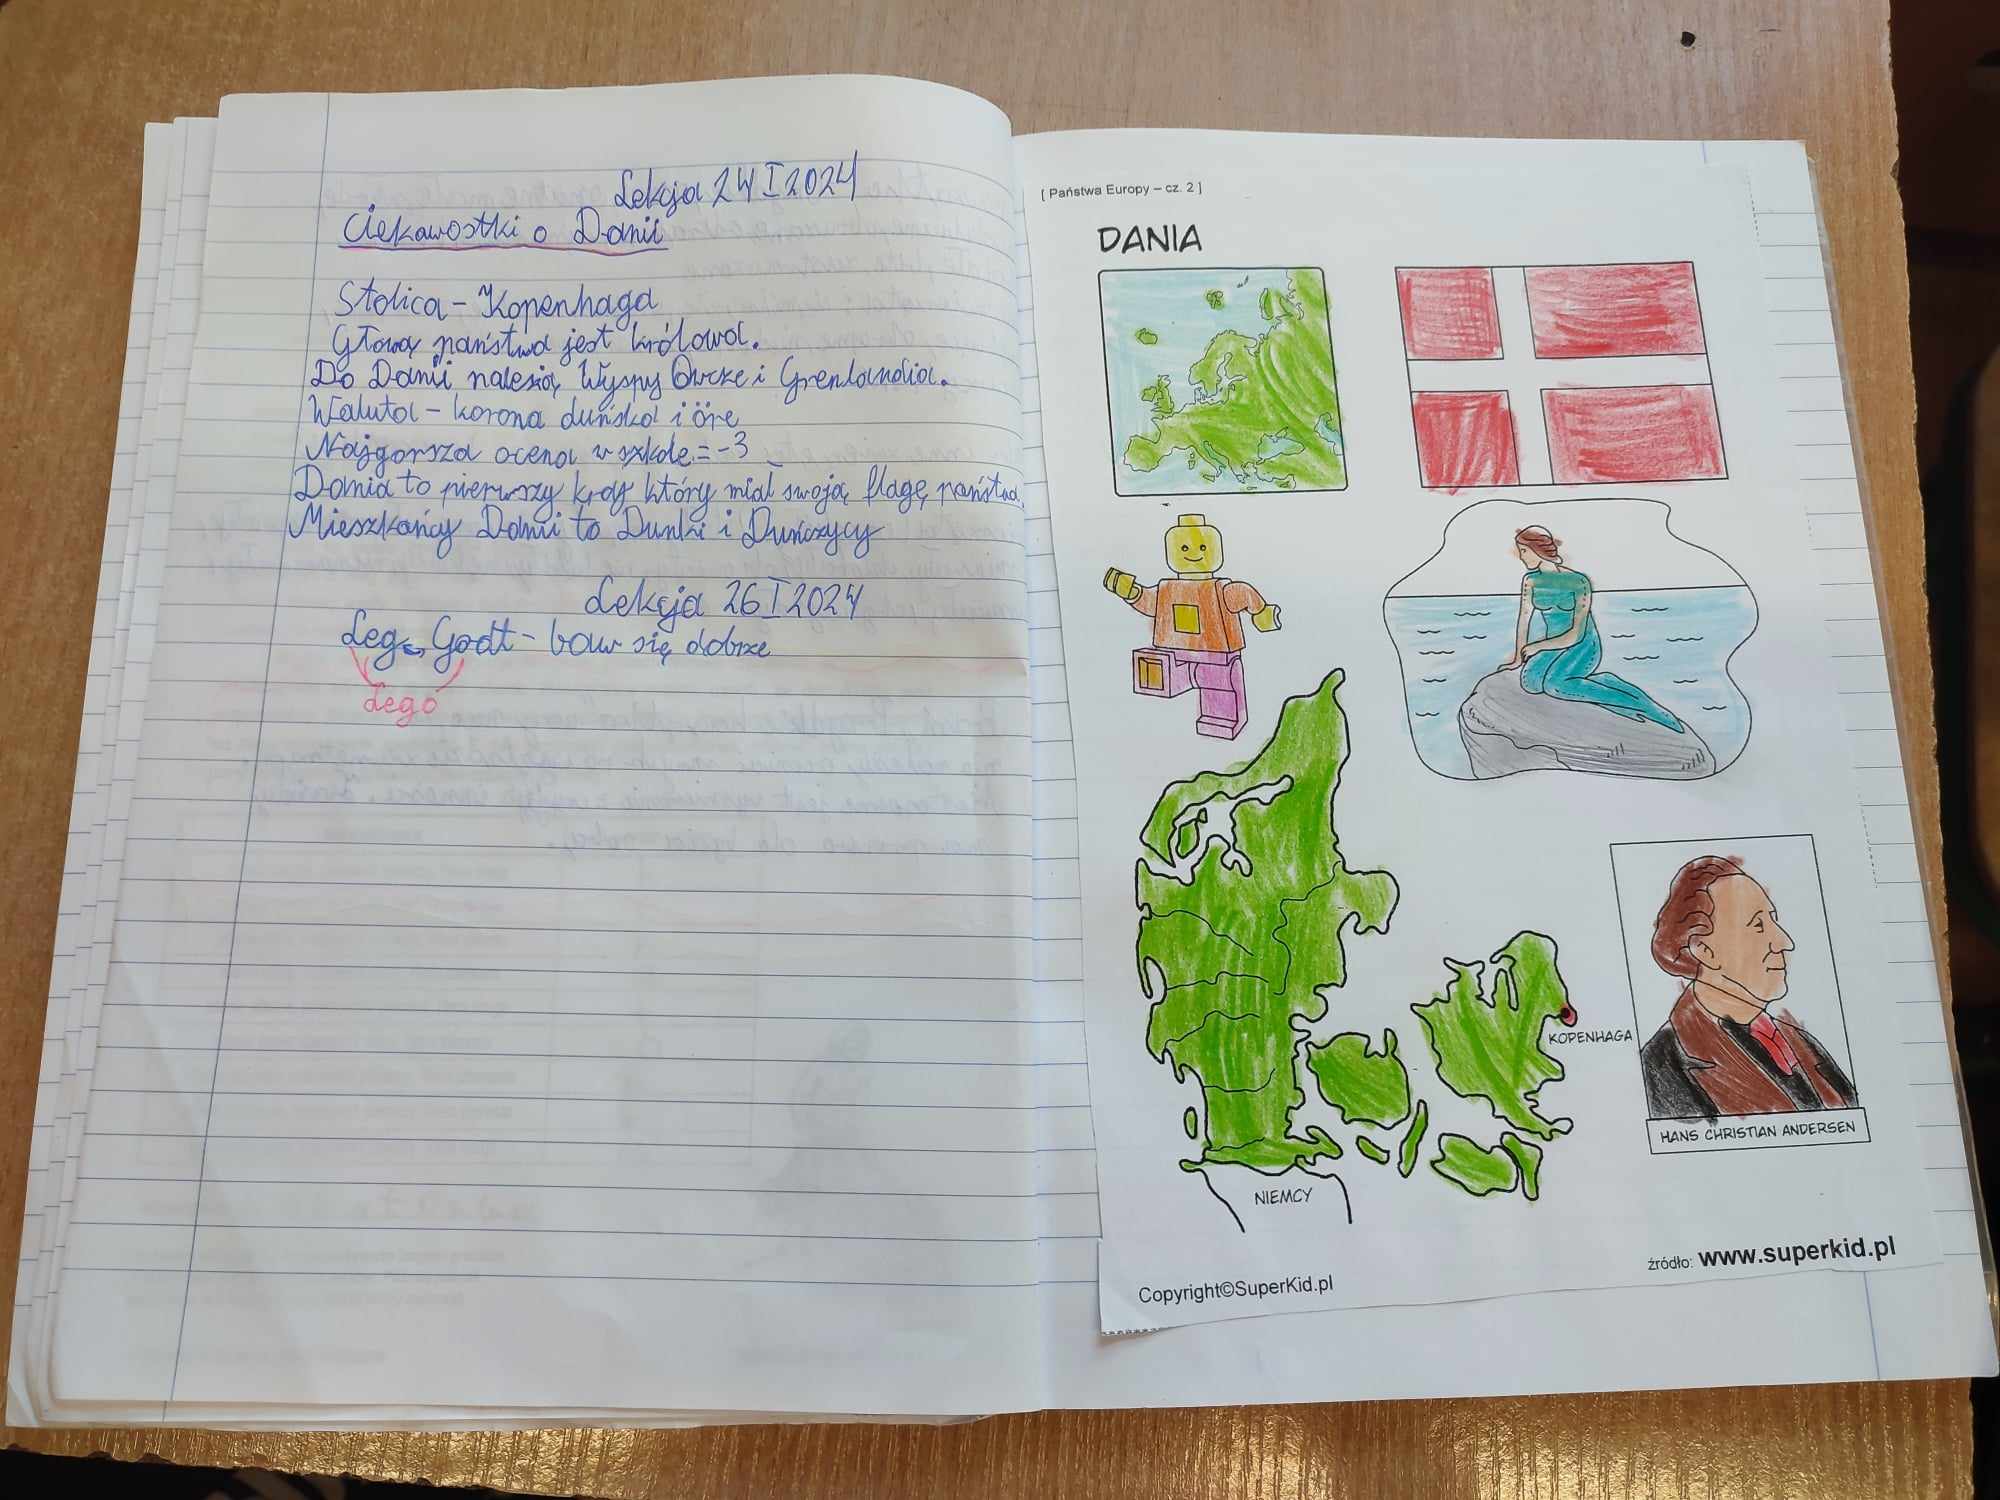 Lekcja 24 I 2024
Ciekawostki o Danii
Stolica - Kopenhaga
Głową państwa jest królowa.
Do Danii nalesią Wyspy Owcze i Grenlandia.
Waluta - korona duńska i öre
Najgorsza ocena w szkole = -3
Dania to pierwszy kraj który miał swoją flagę państwa.
Mieszkańcy Danii to Dunki i Duńczycy
Lekcja 26 I 2024
Leg Godt - baw się dobrze
Lego
[ Państwa Europy – cz. 2 ]
DANIA
KOPENHAGA
HANS CHRISTIAN ANDERSEN
NIEMCY
źródło: www.superkid.pl
Copyright©SuperKid.pl